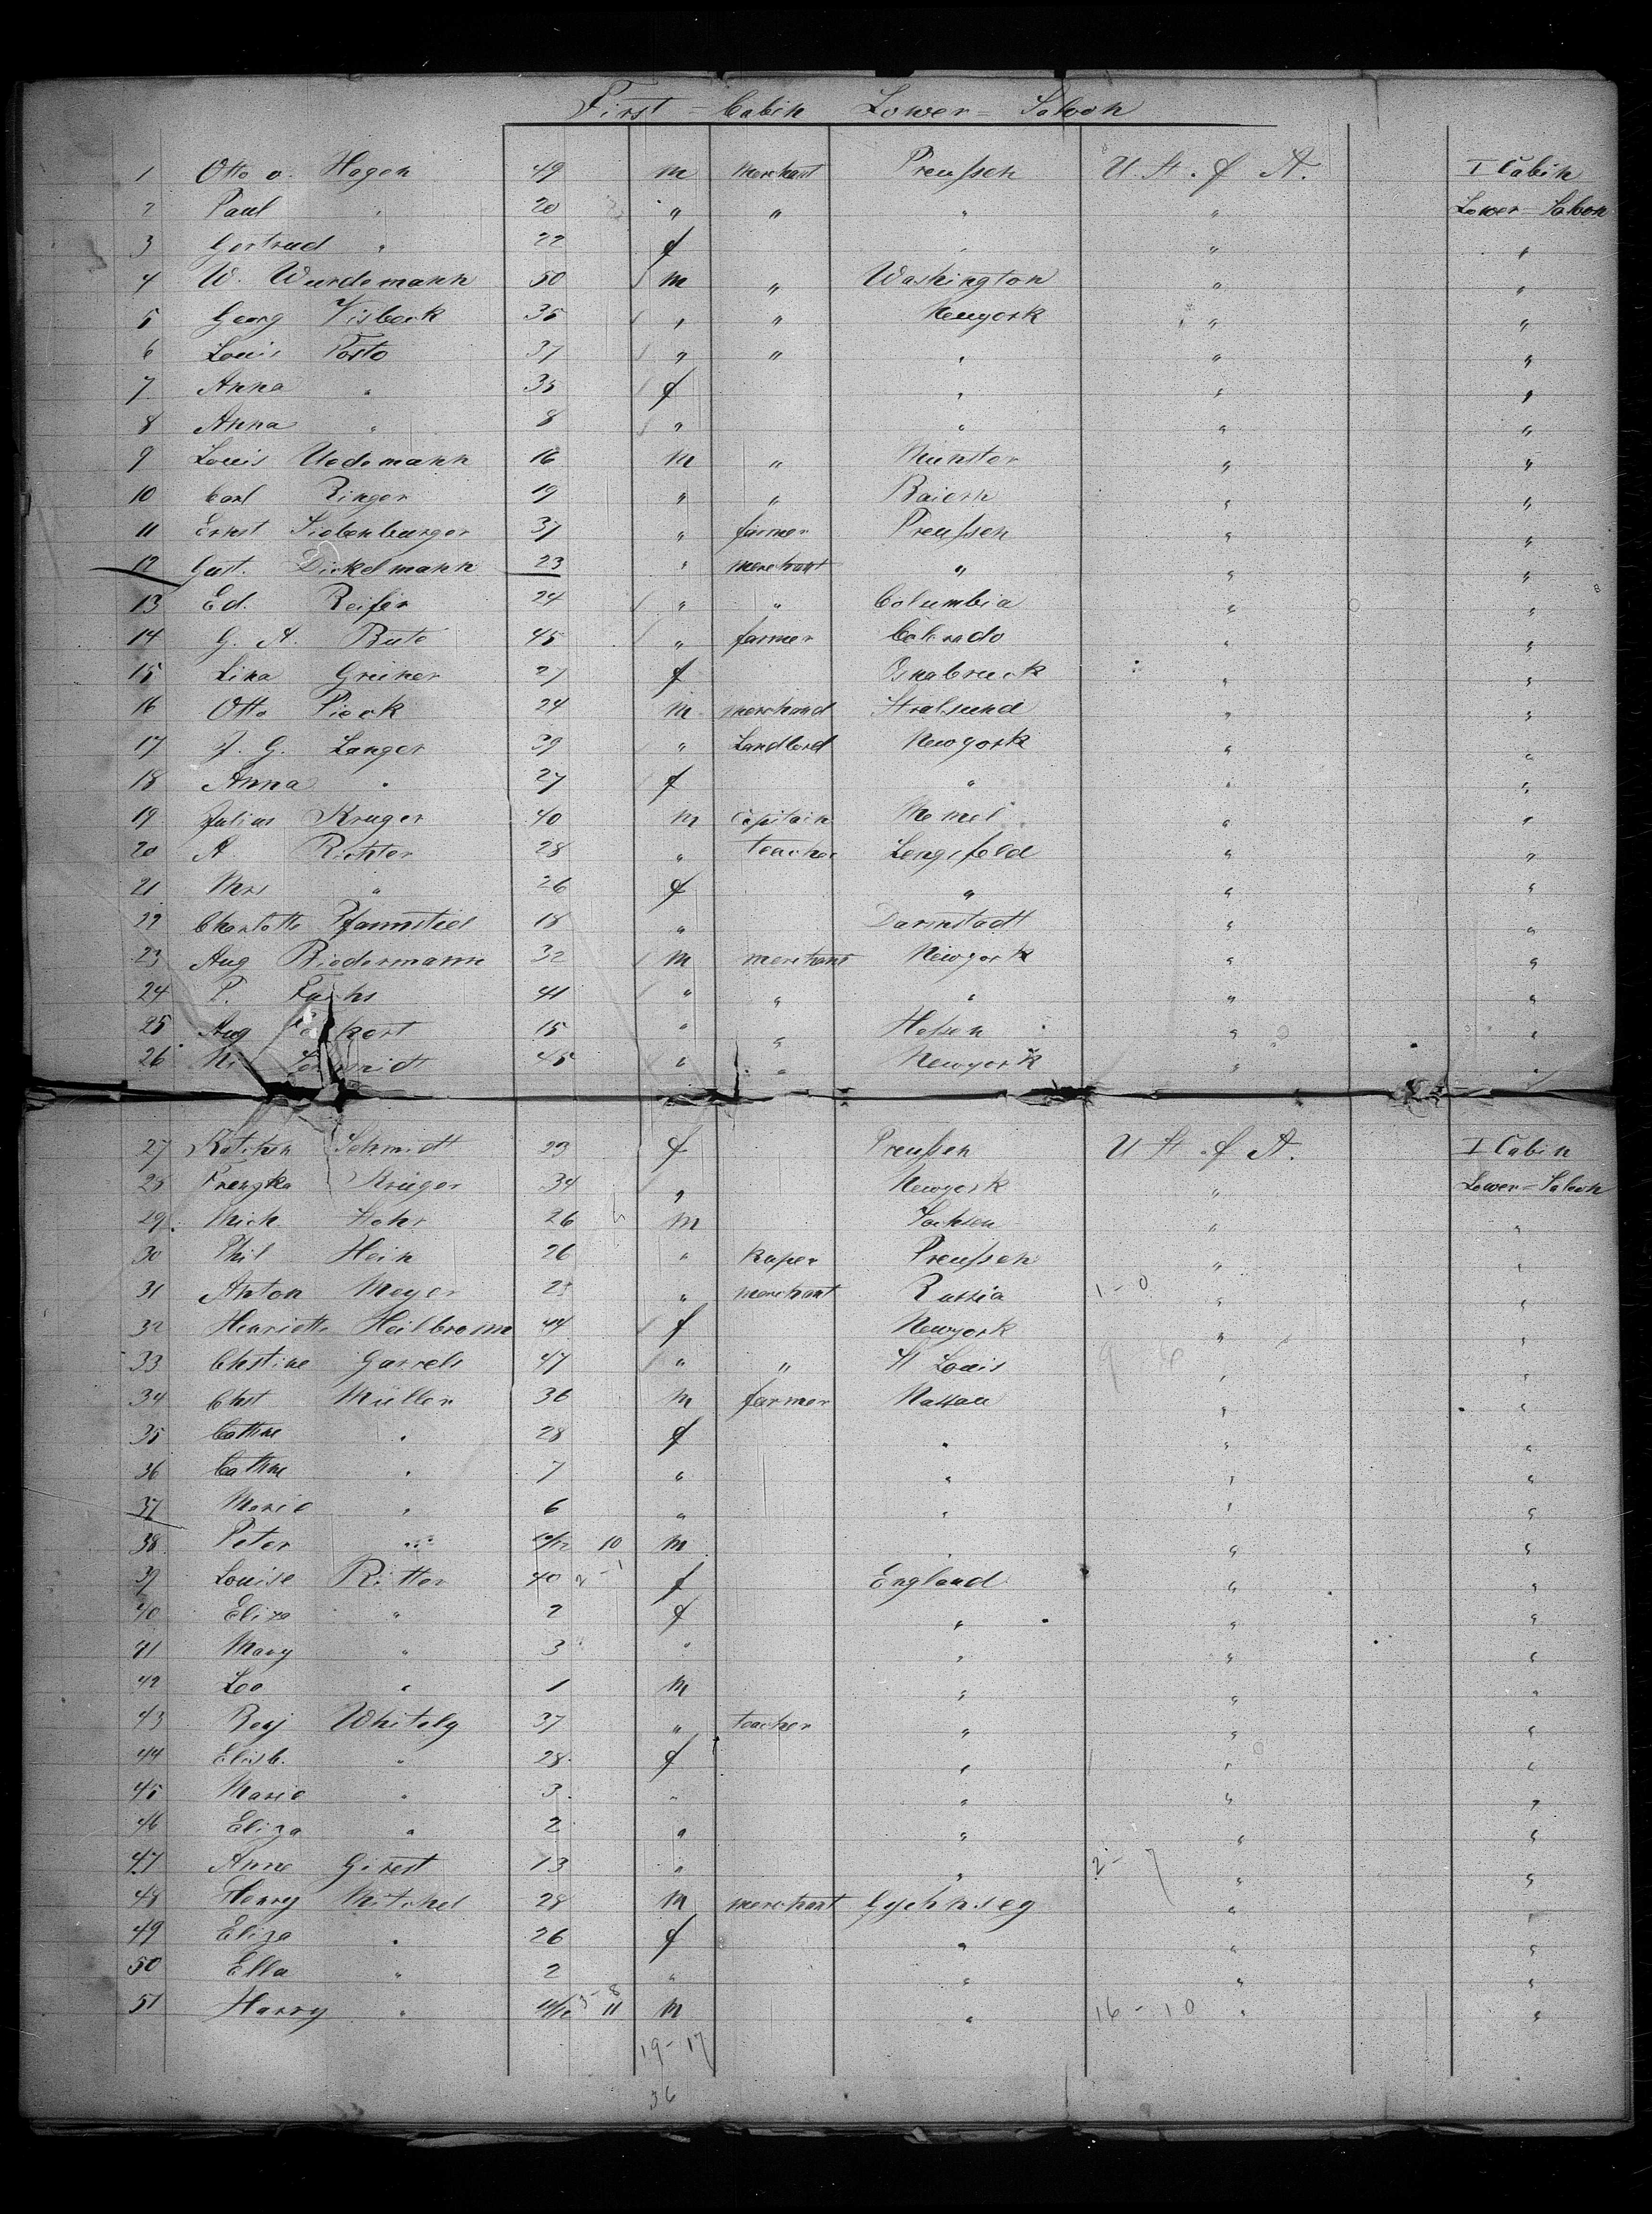 First = Cabin Lower = Saloon
1 Otto v. Hagen 49 m Merchant Preussen U. St. of A. I Cabin
2 Paul " 20 " " " " Lower = Saloon
3 Gertrud " 22 f " " "
4 W. Wurdemann 50 m " Washington " "
5 Georg Visbeck 35 " " Newyork " "
6 Louis Porto 37 " " " " "
7 Anna " 35 f " " "
8 Anna " 8 " " " "
9 Louis Uedemann 16 m " Münster " "
10 Carl Ringer 19 " " Baiern " "
11 Ernst Siebenburger 37 " farmer Preussen " "
12 Gust. Dickelmann 23 " merchant " " "
13 Ed. Reifer 24 " " Columbia " "
14 G. A. Bute 45 " farmer Colorado " "
15 Lina Greiner 27 f Osnabruck " "
16 Otto Pieck 24 m merchand Stralsund " "
17 J. G. Langer 39 " Landlord Newyork " "
18 Anna " 27 f " " "
19 Julius Kruger 40 m Capitain Memel " "
20 A Richter 28 " teacher Lengefeld " "
21 Mrs " 26 f " " "
22 Charlotte Pfannstiel 18 " Darmstadt " "
23 Aug Biedermann 32 m merchant Newyork " "
24 P. Fuchs 41 " " " " "
25 Aug 15 " " Hessen " "
26 Schmidt 45 " " Newyork " "
27 Katchen Schmidt 23 f Preussen U St. of A. I Cabin
28 Franzka Krüger 34 " Newyork " Lower = Saloon
29 Mich Hohr 26 m Sachsen " "
30 Phil Hein 26 " Kuper Preussen " "
31 Anton Meyer 25 " merchant Russia 1-0 " "
32 Henriette Heilbronn 44 f Newyork " "
33 Chstine Garrels 47 " " St Louis " "
34 Chst Müller 36 m farmer Nassau " "
35 Cathne " 28 f " " "
36 Cathne " 7 " " " "
37 Marie " 6 " " " "
38 Peter " 10/12 10 m " " "
39 Louise Ritter 40 2-1 f England " "
40 Eliza " 2 f " " "
41 Mary " 3 " " " "
42 Leo " 1 m " " "
43 Benj Whitely 37 " teacher " " "
44 Elisb. " 28 f " " "
45 Marie " 3 " " " "
46 Eliza " 2 " " " "
47 Anne Girest 13 " " 2-7 " "
48 Henry Mitchel 28 m merchant " "
49 Eliza " 26 f " " "
50 Ella " 2 " " " "
51 Harry " 11/12 3-8 11 m " 16-10 " "
19-17
36